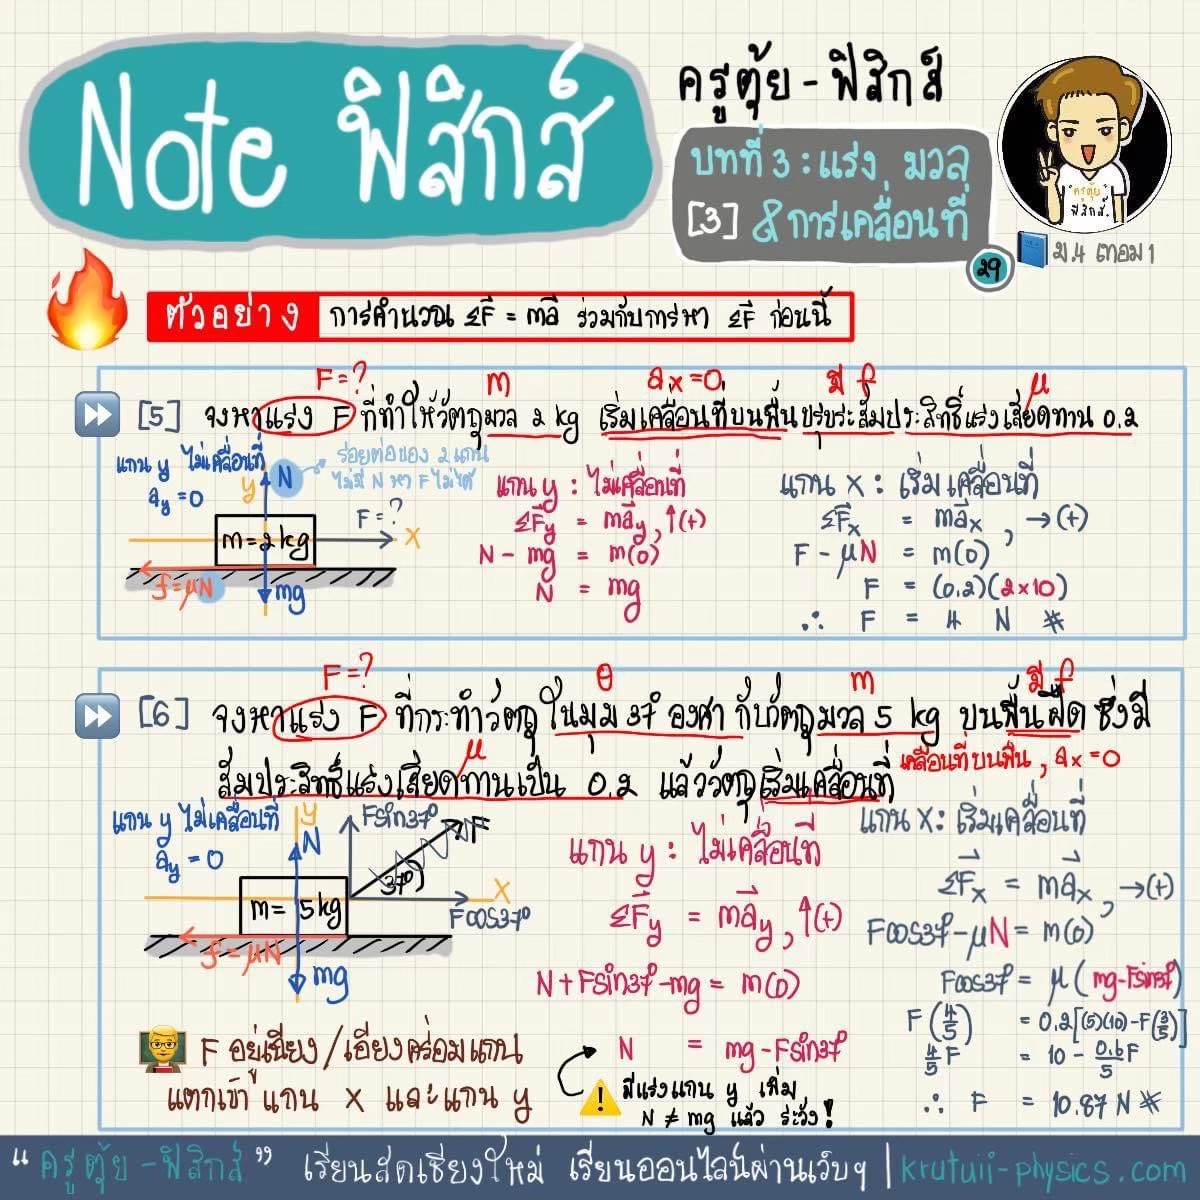 Note ฟิสิกส์
ครูตุ้ย - ฟิสิกส์
บทที่ 3 : แรง มวล
[3] & การเคลื่อนที่
29
ม.4 เทอม 1
"ครูตุ้ย
ฟิสิกส์"
ตัวอย่าง การคำนวณ ΣF⃗ = ma⃗ ร่วมกับการหา ΣF⃗ ก่อนนี้
F = ? m aₓ = 0 มี f μ
[5] จงหาแรง F ที่ทำให้วัตถุมวล 2 kg เริ่มเคลื่อนที่บนพื้นขรุขระสัมประสิทธิ์แรงเสียดทาน 0.2
แกน y ไม่เคลื่อนที่
a_y = 0
y
N
ร่อยต่อของ 2 แกน
ไม่มี N หา F ไม่ได้
F = ?
x
m = 2 kg
f = μN
mg
แกน y : ไม่เคลื่อนที่
ΣF⃗_y = ma⃗_y , ↑(+)
N - mg = m(0)
N = mg
แกน x : เริ่มเคลื่อนที่
ΣF⃗ₓ = ma⃗ₓ , →(+)
F - μN = m(0)
F = (0.2)(2×10)
∴ F = 4 N #
F = ? θ m มี f
[6] จงหาแรง F ที่กระทำวัตถุในมุม 37 องศา กับวัตถุมวล 5 kg บนพื้นฝืด ซึ่งมี
μ
สัมประสิทธิ์แรงเสียดทานเป็น 0.2 แล้ววัตถุเริ่มเคลื่อนที่
เคลื่อนที่บนพื้น , aₓ = 0
แกน y ไม่เคลื่อนที่
a_y = 0
y
N
Fsin37°
F
37°
x
Fcos37°
m = 5 kg
f = μN
mg
แกน y : ไม่เคลื่อนที่
ΣF⃗_y = ma⃗_y , ↑(+)
N + Fsin37° - mg = m(0)
N = mg - Fsin37°
แกน x : เริ่มเคลื่อนที่
ΣF⃗ₓ = ma⃗ₓ , →(+)
Fcos37° - μN = m(0)
Fcos37° = μ(mg - Fsin37°)
F(4/5) = 0.2[(5)(10) - F(3/5)]
4/5 F = 10 - 0.6/5 F
∴ F = 10.87 N #
F อยู่เฉียง / เอียงคร่อมแกน
แตกเข้า แกน x และแกน y
มีแรงแกน y เพิ่ม
N ≠ mg แล้ว ระวัง !
"ครูตุ้ย - ฟิสิกส์" เรียนสดเชียงใหม่ เรียนออนไลน์ผ่านเว็บฯ | krutuii-physics.com